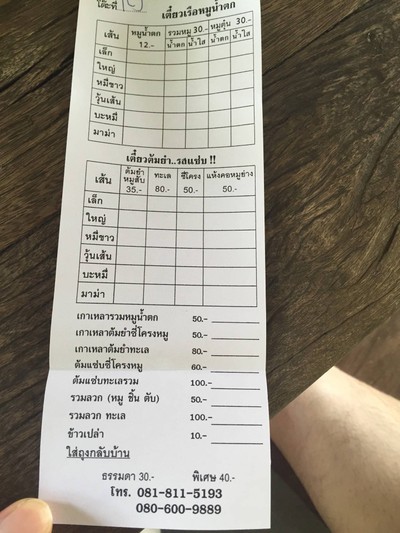 โต๊ะที่
เตี๋ยวเรือหมูน้ำตก
เส้น หมูน้ำตก 12.- รวมหมู 30.- หมูตุ๋น 30.-
น้ำตก น้ำใส น้ำตก น้ำใส
เล็ก
ใหญ่
หมี่ขาว
วุ้นเส้น
บะหมี่
มาม่า
เตี๋ยวต้มยำ..รสแซ่บ !!
เส้น ต้มยำหมูสับ 35.- ทะเล 80.- ซี่โครง 50.- แห้งคอหมูย่าง 50.-
เล็ก
ใหญ่
หมี่ขาว
วุ้นเส้น
บะหมี่
มาม่า
เกาเหลารวมหมูน้ำตก 50.-
เกาเหลาต้มยำซี่โครงหมู 50.-
เกาเหลาต้มยำทะเล 80.-
ต้มแซ่บซี่โครงหมู 60.-
ต้มแซ่บทะเลรวม 100.-
รวมลวก (หมู ชิ้น ตับ) 50.-
รวมลวก ทะเล 100.-
ข้าวเปล่า 10.-
ใส่ถุงกลับบ้าน
ธรรมดา 30.- พิเศษ 40.-
โทร. 081-811-5193
080-600-9889